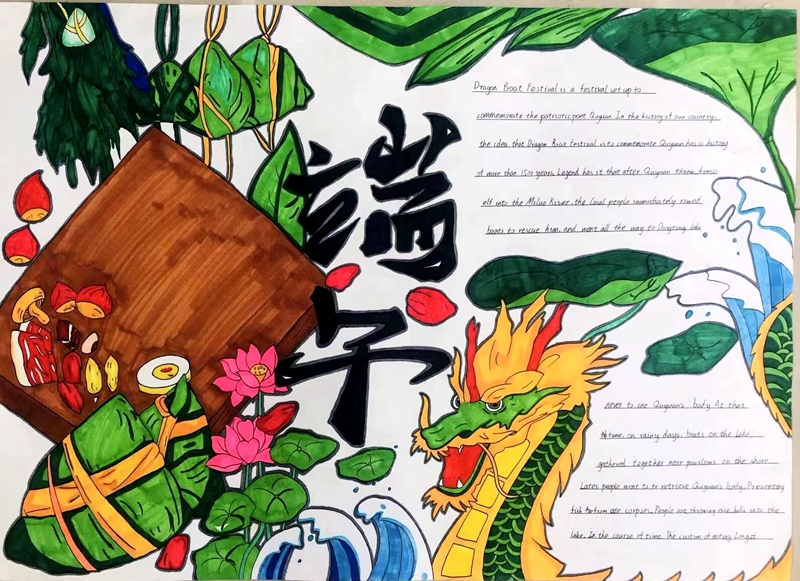 端午
Dragon Boat Festival is a festival set up to
commemorate the patriotic poet Quyuan. In the history of our country,
the idea that Dragon Boat Festival is to commemorate Quyuan has a history
of more than 1500 years. Legend has it that after Quyuan threw hims-
elf into the Miluo River, the local people immediately rowed
boats to rescue him, and went all the way to Dongting Lake
never to see Quyuan's body. At that
time, on rainy days, boats on the lake
gathered together near pavilions on the shore
Later people went to to retrieve Quyuan's body. Preventing
fish from ate corpses. People are throwing rice balls into the
lake. In the course of time. The custom of eating